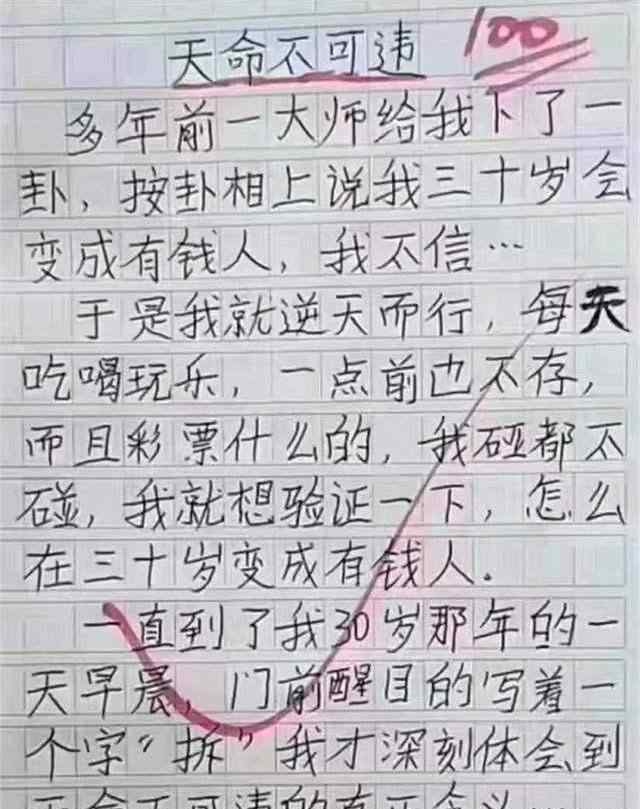 天命不可违 100
多年前一大师给我下了一
卦，按卦相上说我三十岁会
变成有钱人，我不信…
于是我就逆天而行，每天
吃喝玩乐，一点前也不存，
而且彩票什么的，我碰都不
碰，我就想验证一下，怎么
在三十岁变成有钱人．
一直到了我30岁那年的一
天早晨，门前醒目的写着一
个字“拆”我才深刻体会到